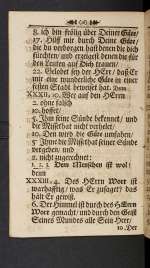 8. ich bin frölig über Deiner Güte/
17. Hilff mir durch Deine Güte/
die du verborgen hast denen die dich
fürchten/ und erzeigest denen die für
den Leuten auff Dich trauen/
22. Gelobet sey der HErr/ daß Er
mir eine wunderliche Güte in einer
festen Stadt beweiset hat.
XXXII. 10. Wer auff den HErrn
2. ohne falsch
10. hoffet/
5. Ihm seine Sünde bekennet/ und
die Missethat nicht verhelet/
10. Den wird die Güte umfahen/
5. Ihme die Missethat seiner Sünde
vergeben/ und
2. nicht zugerechnet:
1. 2. Dem Menschen ist wol!
denn
XXXIII. 4. Des HErrn Wort ist
warhafftig/ was Er zusaget/ das
hält Er gewiß.
6. Der Himmel ist durch des HErrn
Wort gemacht/ und durch den Geist
Seines Mundes alle Sein Heer/
10. Der